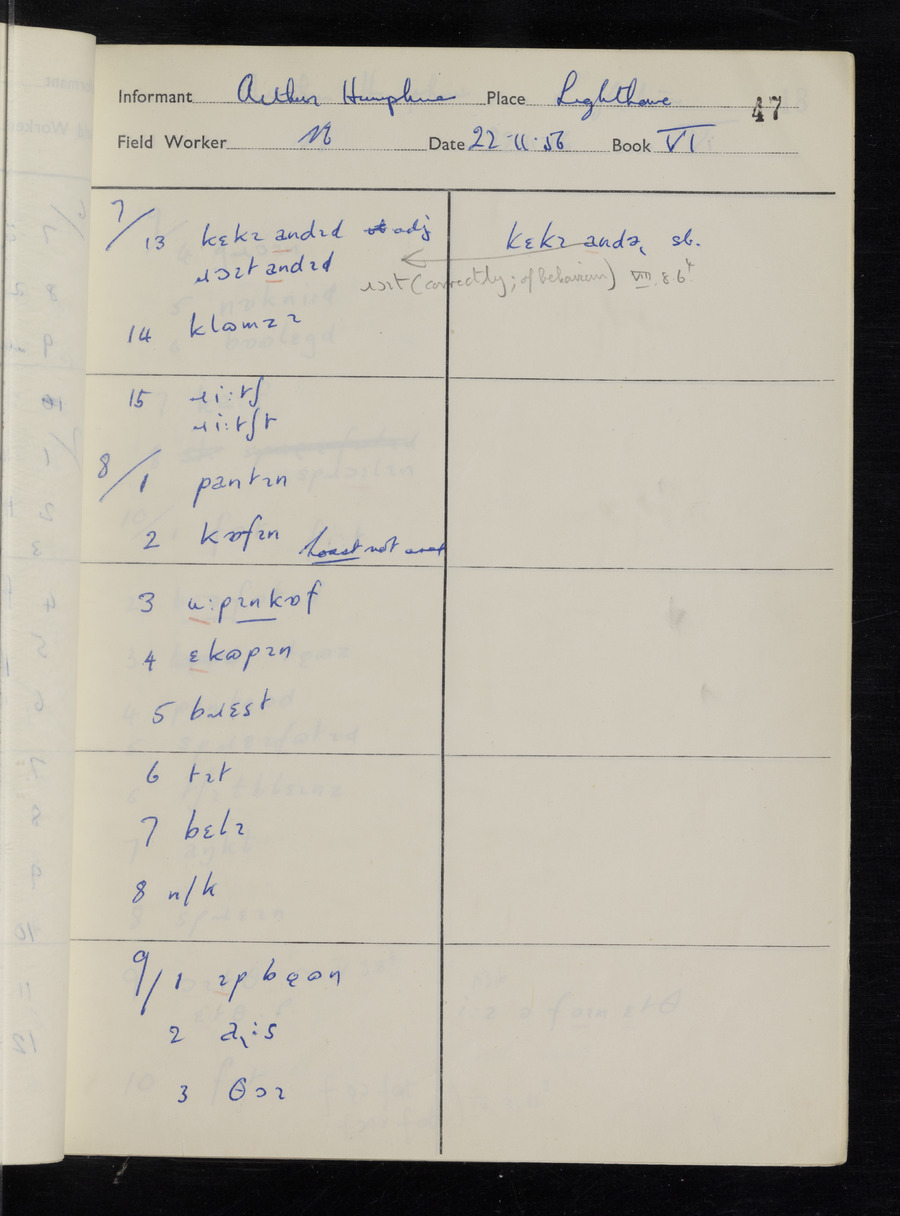 Informant Arthur Humphries Place Lighthorne 47
Field Worker Date 22·11·56 Book VI
7/13 kɛkɪ andɪd adj kɛkɪ andə˞ sb.
ɹɔɪt andɪd
ɹɔɪt (correctly; of behaviour) VIII.8.6.
14 klɒmzɪ
15 ɹi:tʃ
ɹi:tʃt
8/1 pantɪn
2 kɒfɪn hoast not used
3 u:pɪnkɒf
4 ɛkɷpɪn
5 bɹɛst
6 tɪt
7 bɛlɪ
8 n/k
9/1 ɪp bɷən
2 ə˞:s
3 θɔɪ